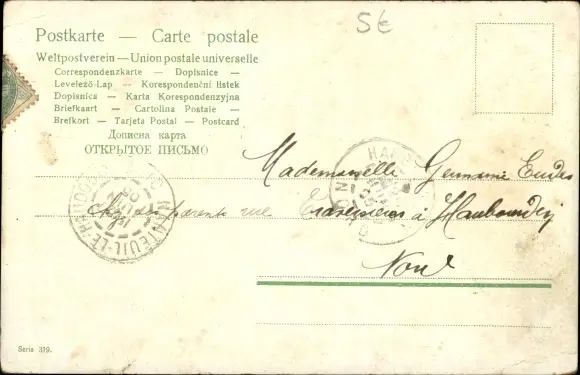 5€
Postkarte — Carte postale
Weltpostverein — Union postale universelle
Correspondenzkarte — Dopisnice —
Levelező-Lap — Korespondenční listek
Dopisnica — Karta Korespondenzyjna
Briefkaart — Cartolina Postale —
Brefkort — Tarjeta Postal — Postcard
Дописна карта
ОТКРЫТОЕ ПИСЬМО
Mademoiselle Germaine Eudes
chez ses parents rue Traversière à Haubourdin
Nord
NANTEUIL-LE-HAUDOUIN
Serie 319.